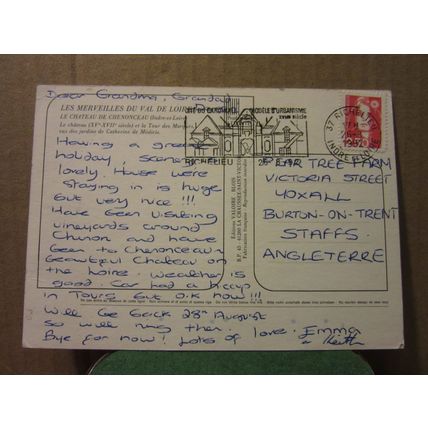 Dear Grandma, Grandad
LES MERVEILLES DU VAL DE LOIRE
LE CHATEAU DE CHENONCEAU (Indre-et-Loire)
Le château (XVe-XVIe siècle) et la Tour des Marques
vus des jardins de Catherine de Médicis.
Having a great
holiday, scenery
lovely. House were
staying in is huge
but very nice!!!
Have been visiting
vineyards around
Chinon and have
been to Chenonceau
beautiful Chateau on
the Loire. Weather is
good. Car had a hiccup
in Tours but O.K now!!!
Will be back 28th August
so will ring then.
Bye for now! Lots of love. Emma
& Keith
Editions VALOIRE - BLOIS
CITE DU CARDINAL
MODÈLE D'URBANISME
XVIIe siècle
RICHELIEU
37 RICHELIEU
1992
INDRE ET LOIRE
PEAR TREE FARM
VICTORIA STREET
YOXALL
BURTON-ON-TRENT
STAFFS.
ANGLETERRE